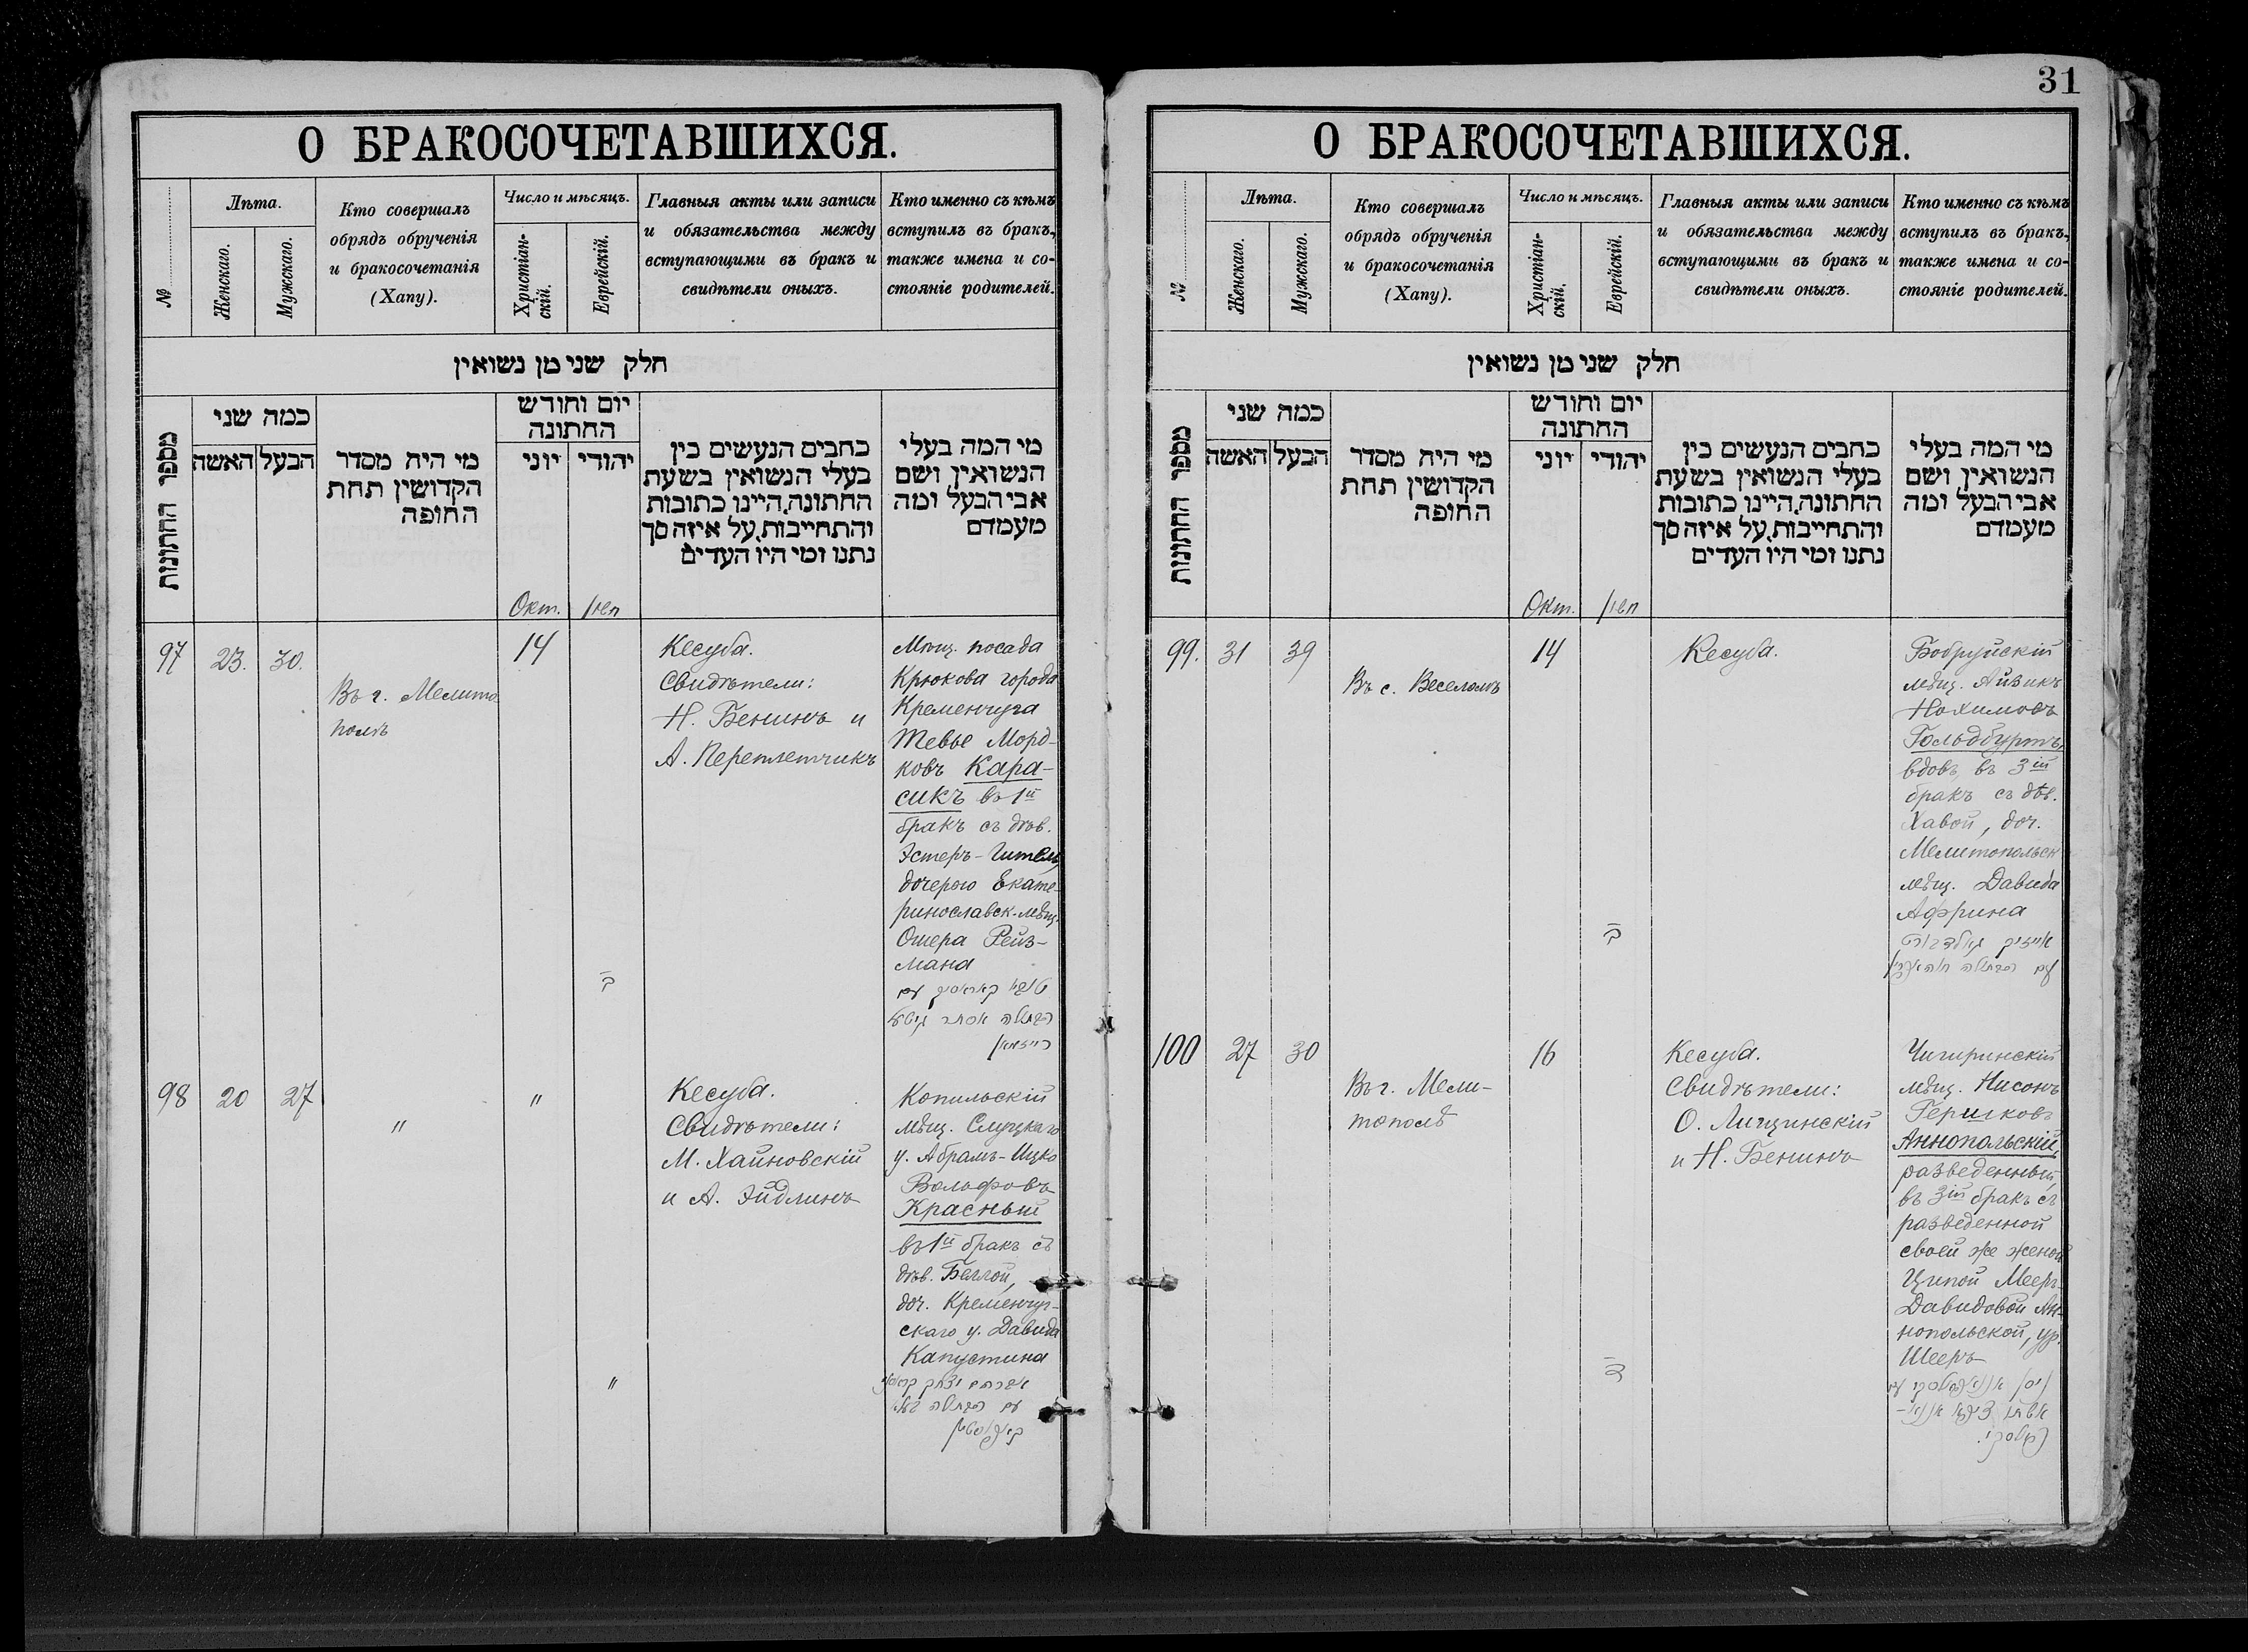 31
О БРАКОСОЧЕТАВШИХСЯ.
№
Лѣта.
Женскаго.
Мужскаго.
Кто совершалъ
обрядъ обрученія
и бракосочетанія
(Хапу).
Число и мѣсяцъ.
Христіан-
скій.
Еврейскій.
Главныя акты или записи
и обязательства между
вступающими въ бракъ и
свидѣтели оныхъ.
Кто именно съ кѣмъ
вступилъ въ бракъ,
также имена и со-
стояніе родителей.
חלק שני מן נשואין
מספר החתונות
כמה שני
הבעל
האשה
מי היה מסדר
הקדושין תחת
החופה
יום וחודש
החתונה
יהודי
יוני
כתבים הנעשים בין
בעלי הנשואין בשעת
החתונה, היינו כתובות
והתחייבות, על איזה סך
נתנו ומי היו העדים
מי המה בעלי
הנשואין ושם
אבי הבעל ומה
מעמדם
Окт.
חשון
97
23.
30.
Въ г. Мелито
полѣ
14
Кесуба.
Свидѣтели:
Н. Бенинъ и
А. Переплетчикъ
Мѣщ. посада
Крюкова города
Кременчуга
Тевье Морд-
ковъ Кара-
сикъ въ 1й
бракъ съ дѣв.
Эстеръ-Гитель,
дочерью Екате-
ринославск. мѣщ.
Ошера Рейз-
мана
טוביא קאראסיק עם
הבתולה אסתר גיטל
רייזמאן
98
20
27
"
"
Кесуба.
Свидѣтели:
М. Хайновскій
и А. Эйдлинъ
Копильскій
мѣщ. Слуцкаго
у. Абрамъ-Ицко
Вольфовъ
Красный
въ 1й бракъ съ
дѣв. Беллой,
доч. Кременчуг-
скаго у. Давида
Капустина
"
אברהם יצחק
עם הבתולה בעלא
קאפוסטין
О БРАКОСОЧЕТАВШИХСЯ.
№
Лѣта.
Женскаго.
Мужскаго.
Кто совершалъ
обрядъ обрученія
и бракосочетанія
(Хапу).
Число и мѣсяцъ.
Христіан-
скій.
Еврейскій.
Главныя акты или записи
и обязательства между
вступающими въ бракъ и
свидѣтели оныхъ.
Кто именно съ кѣмъ
вступилъ въ бракъ,
также имена и со-
стояніе родителей.
חלק שני מן נשואין
מספר החתונות
כמה שני
הבעל
האשה
מי היה מסדר
הקדושין תחת
החופה
יום וחודש
החתונה
יהודי
יוני
כתבים הנעשים בין
בעלי הנשואין בשעת
החתונה, היינו כתובות
והתחייבות, על איזה סך
נתנו ומי היו העדים
מי המה בעלי
הנשואין ושם
אבי הבעל ומה
מעמדם
Окт.
חשון
99.
31
39
Въ с. Веселомъ
14
Кесуба.
Бобруйскій
мѣщ. Айзикъ
Нохимовъ
Гольдбуртъ,
вдовъ въ 3ій
бракъ съ дѣв.
Хавой, доч.
Мелитопольск
мѣщ. Давида
Африна
אייזיק גאלדבורט
עם הבתולה חוה אפרין
100
27
30
Въ г. Мели-
тополѣ
16
Кесуба.
Свидѣтели:
О. Лищинскій
и Н. Бенинъ
Чигиринскій
мѣщ. Нисонъ
Гершковъ
Аннопольскій,
разведенный,
въ 3ій бракъ съ
разведенной
своей же женой
Ципой Мееръ-
Давидовой Ан-
нопольской, ур.
Шееръ
ניסן אננאפולסקי עם
אשתו ציפא אננא-
פולסקי.